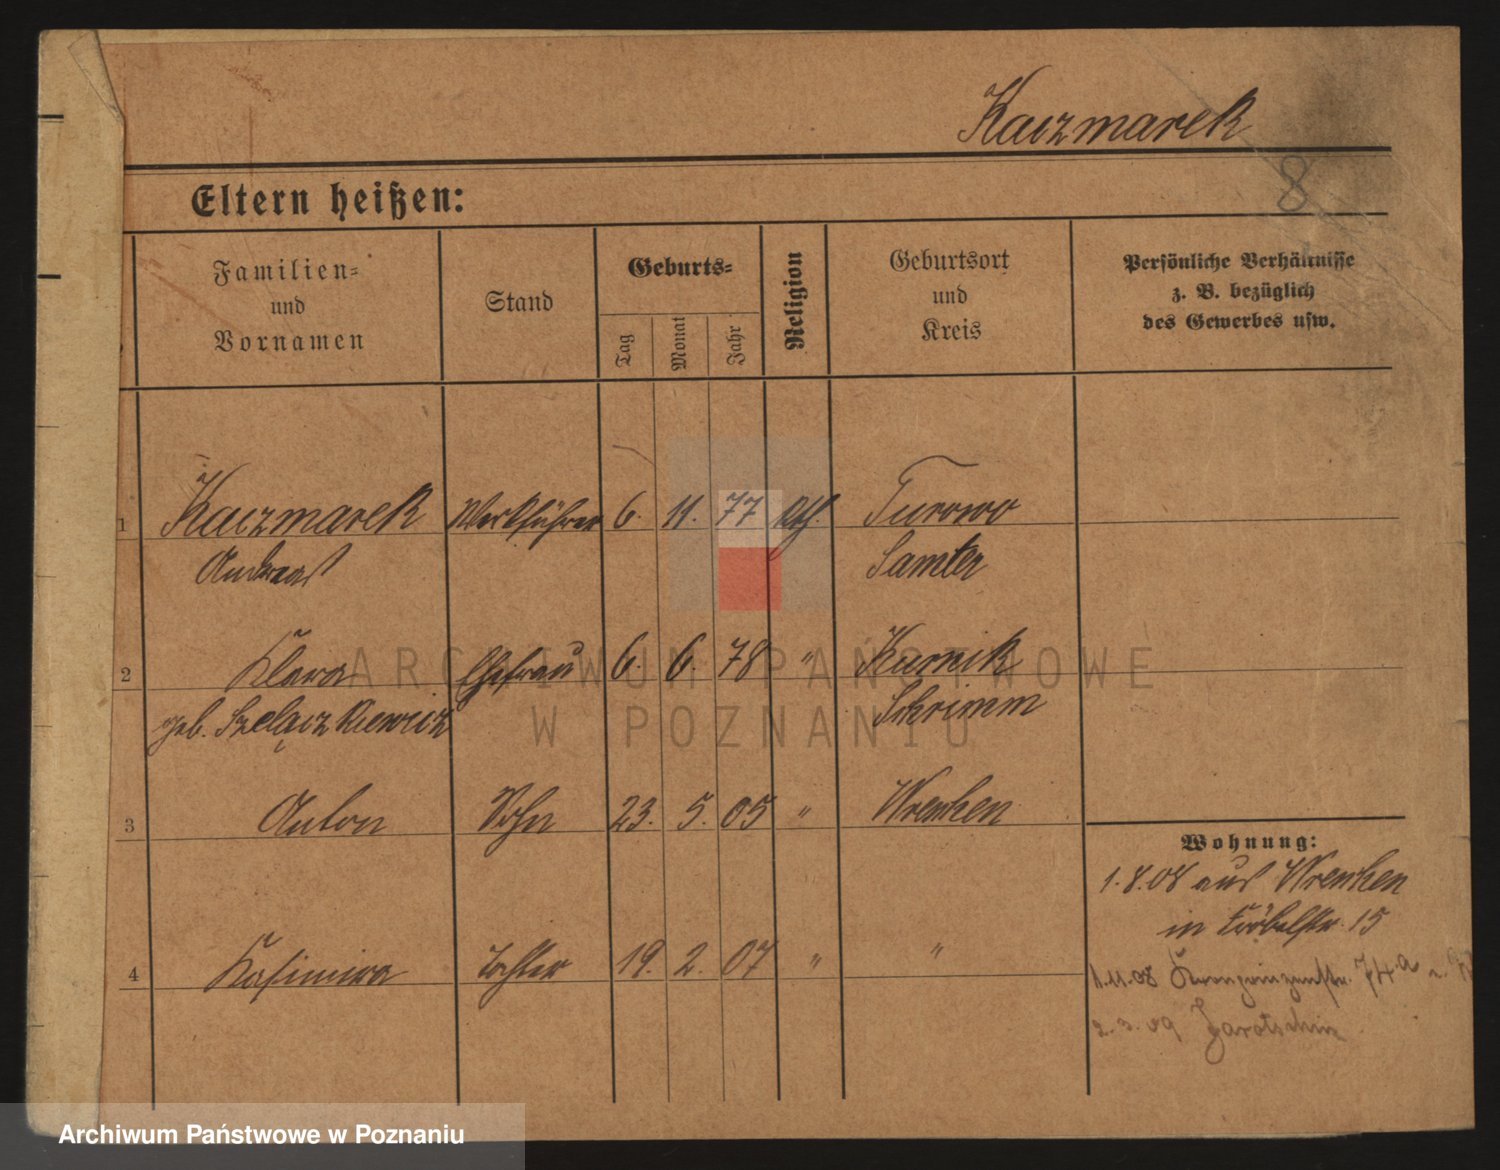 Kaczmarek
8
Eltern heißen:
Familien=
und
Vornamen
Stand
Geburts=
Tag
Monat
Jahr
Religion
Geburtsort
und
Kreis
Persönliche Verhältnisse
z. B. bezüglich
des Gewerbes usw.
1 Kaczmarek Werkführer 6. 11. 77 kth. Turowo
Andreas Samter
2 Klara Ehefrau 6. 6. 78 " Kurnik
geb. Szelączkiewicz Schrimm
3 Anton Sohn 23. 5. 05 " Wreschen
Wohnung:
1.8.08 aus Wreschen
in Fröbelstr. 15
4 Kasimira Tochter 19. 2. 07 " "
1.11.08 Kronprinzenstr. 74a
2.3.09 Jarotschin
ARCHIWUM PAŃSTWOWE
W POZNANIU
Archiwum Państwowe w Poznaniu